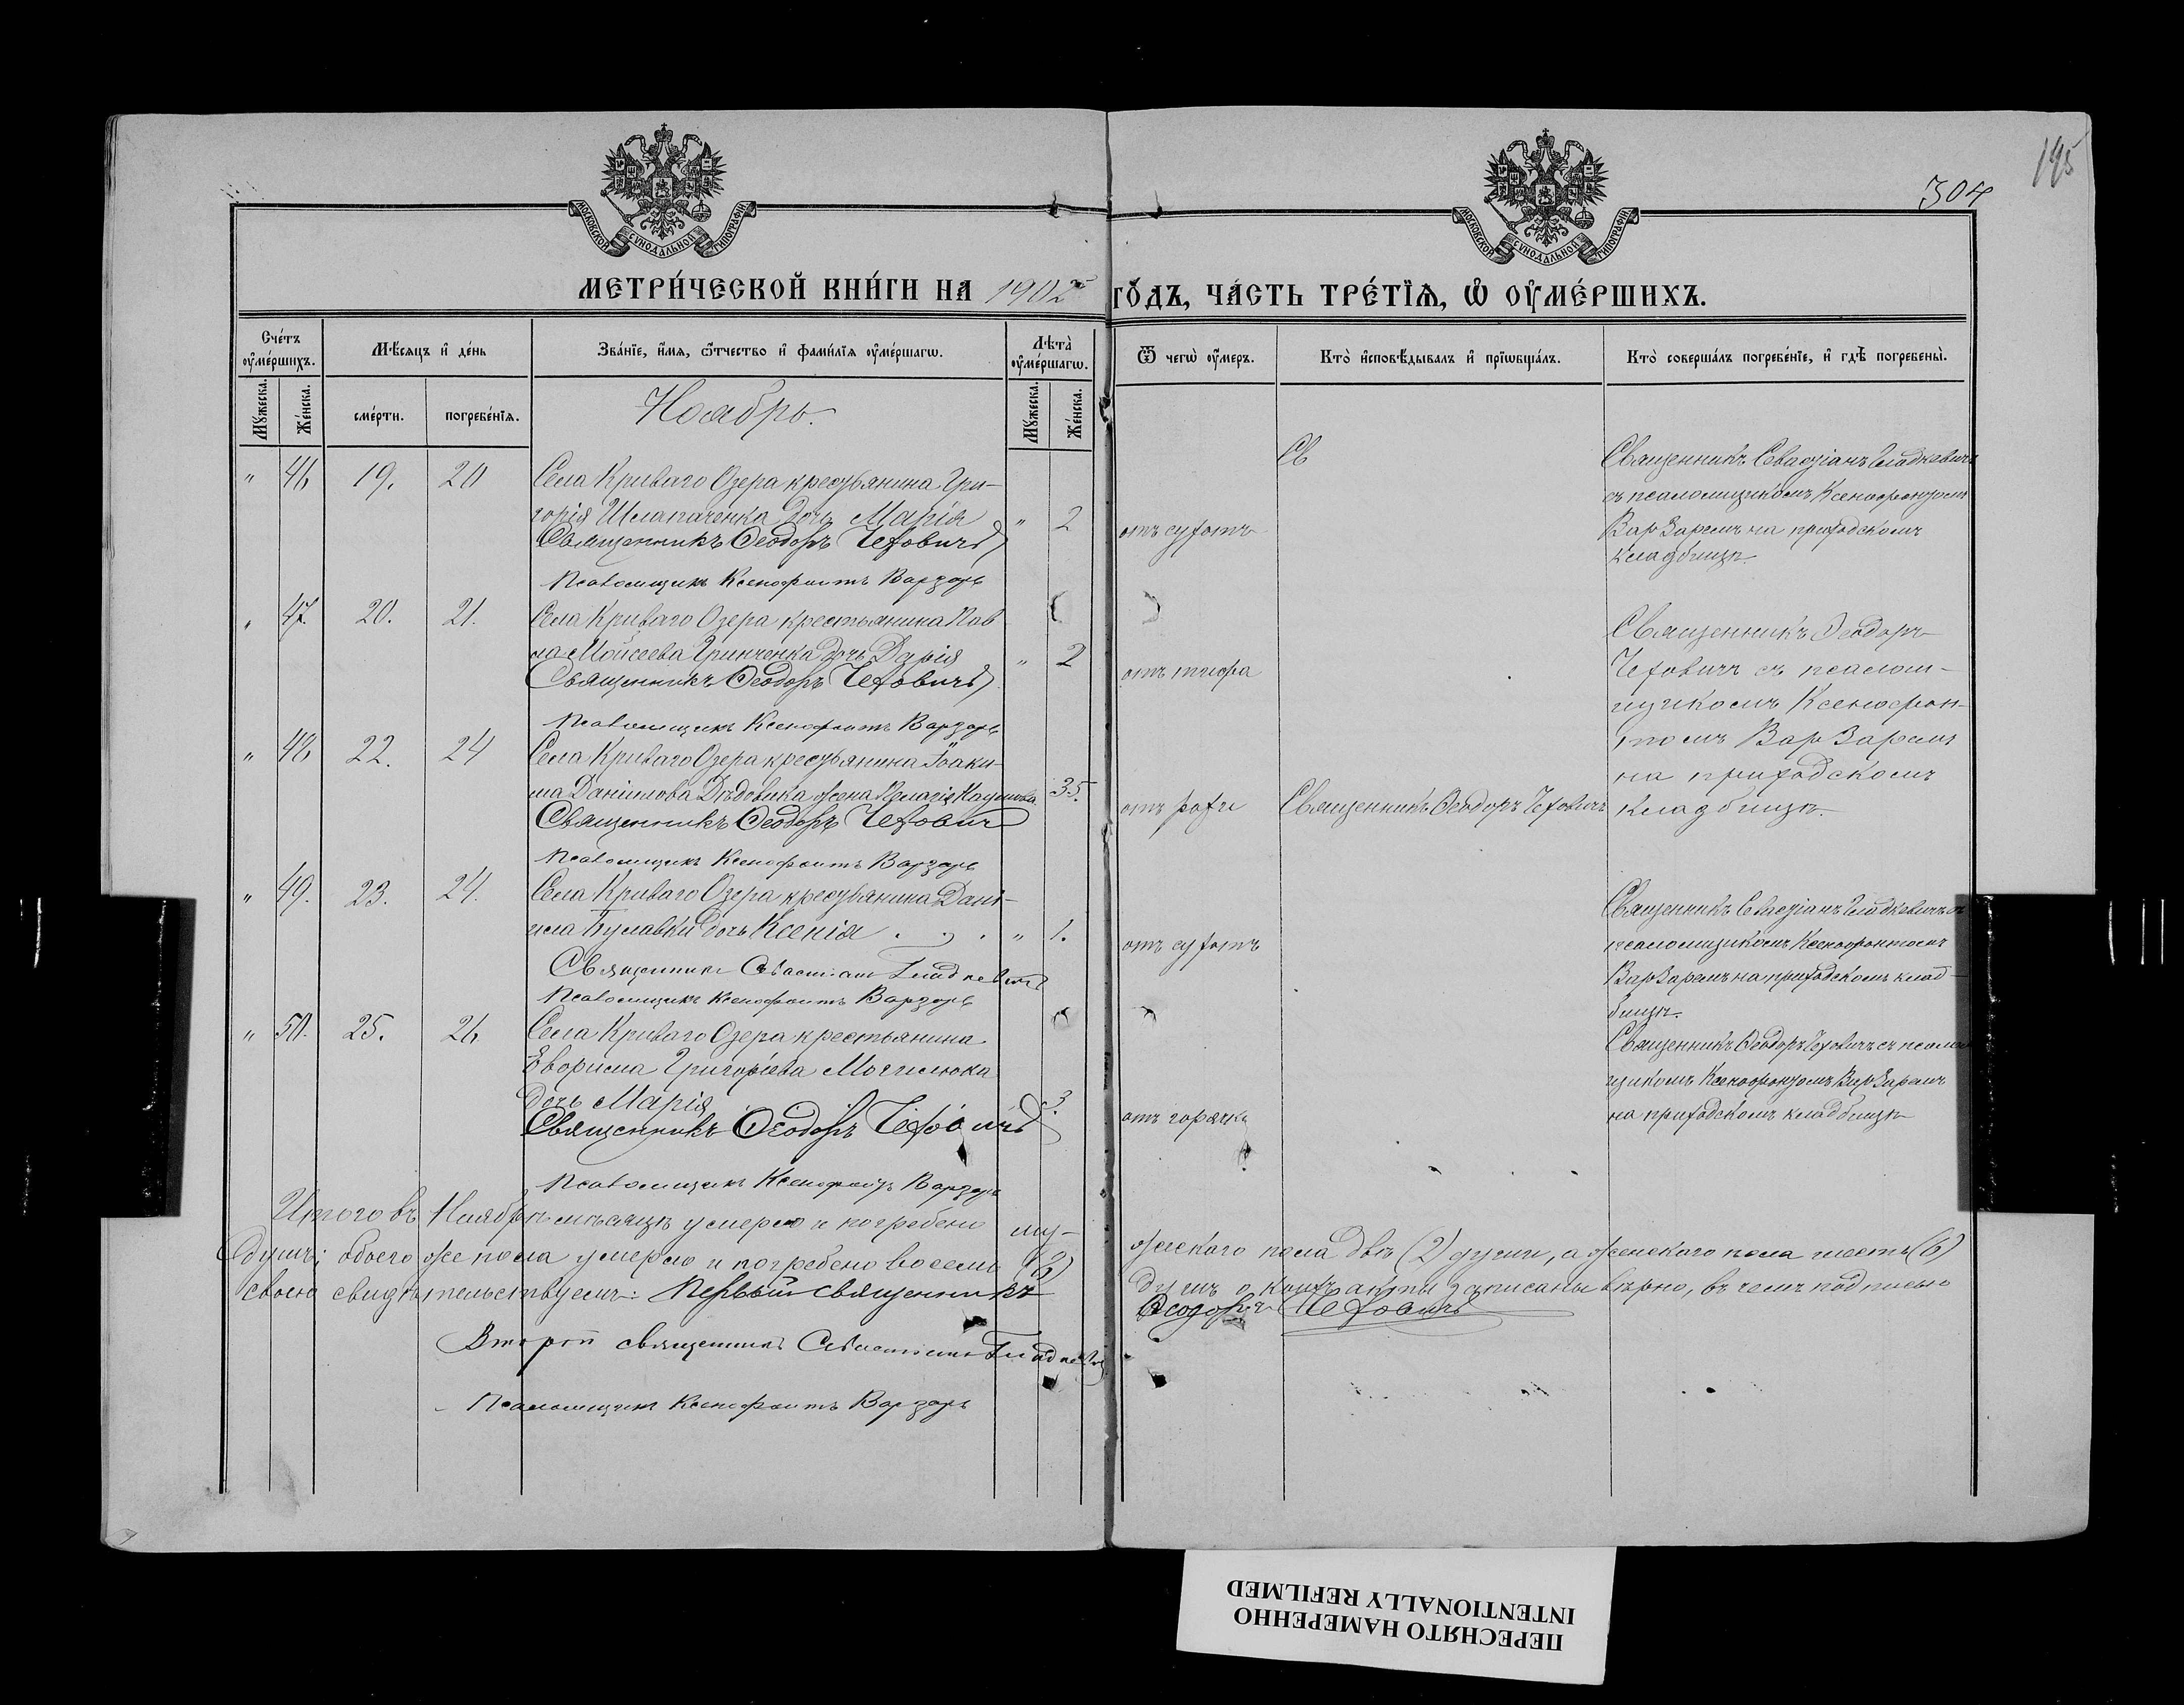 195
304
МОСКОВСКОЙ СѴНОДАЛЬНОЙ ТИПОГРАФІИ
МОСКОВСКОЙ СѴНОДАЛЬНОЙ ТИПОГРАФІИ
МЕТРИ́ЧЕСКОЙ КНИ́ГИ НА 1902 ГО́ДЪ, ЧА́СТЬ ТРЕ́ТЇѦ, Ѡ҆ ОУ҆МЕ́РШИХЪ.
Сче́тъ оу҆ме́ршихъ.
Мꙋ́жеска.
Же́нска.
Мѣ́сѧцъ и҆ де́нь
сме́рти.
погребе́нїѧ.
Зва́нїе, и҆́мѧ, ѻ҆́тчество и҆ фами́лїѧ оу҆ме́ршагѡ.
Лѣ́та оу҆ме́ршагѡ.
Мꙋ́жеска.
Же́нска.
Ѿ чегѡ̀ оу҆́меръ.
Кто̀ и҆сповѣ́дывалъ и҆ прїѡбща́лъ.
Кто̀ соверша́лъ погребе́нїе, и҆ гдѣ̀ погребены̀.
Ноябрь.
" 46 19. 20 Села Криваго Озера крестьянина Гри-
горія Шлапаченка дочь Марія " 2 отъ сухотъ
Священникъ Ѳеодоръ Чехович
Псаломщикъ Ксенофонтъ Варзарь
Св
Священникъ Севастіанъ Гладкевичъ
съ псаломщикомъ Ксенофонтомъ
Варзаремъ на приходскомъ
кладбищѣ.
" 47. 20. 21. Села Криваго Озера крестьянина Пав
ла Мойсеева Гринченка дочь Дарія " 2 отъ тифа
Священникъ Ѳеодоръ Чехович
Псаломщикъ Ксенофонтъ Варзарь
Священникъ Ѳеодоръ
Чеховичъ съ псалом-
щикомъ Ксенофон-
томъ Варзаремъ
на приходскомъ
кладбищѣ.
" 48 22. 24 Села Криваго Озера крестьянина Іоаки-
ма Даніилова Дѣдовика жена Пелагія Наумова 35. отъ рожи Священникъ Ѳеодоръ Чеховичъ
Священникъ Ѳеодоръ Чехович
Псаломщикъ Ксенофонтъ Варзарь
" 49. 23. 24. Села Криваго Озера крестьянина Дані-
ила Булавки дочь Ксенія " 1. отъ сухотъ
Священникъ Севастіанъ Гладкевичъ
Псаломщикъ Ксенофонтъ Варзарь
Священникъ Севастіанъ Гладкевичъ съ
псаломщикомъ Ксенофонтомъ
Варзаремъ на приходскомъ клад-
бищѣ.
" 50. 25. 26 Села Криваго Озера крестьянина
Григоріева
дочь Марія 3 отъ горячки
Священникъ Ѳеодоръ Чехович
Псаломщикъ Ксенофонтъ Варзарь
Священникъ Ѳеодоръ Чеховичъ съ псалом
щикомъ Ксенофонтомъ Варзаремъ
на приходскомъ кладбищѣ
Итого въ Ноябрѣ мѣсяцѣ умерло и погребено му- жескаго пола двѣ (2) души, а женскаго пола шесть (6)
душъ; обоего же пола умерло и погребено восемь душъ о коихъ акты записаны вѣрно, въ чемъ подписью
своею свидѣтельствуемъ: Первый священникъ Ѳеодоръ Чеховичъ
Второй священникъ Севастіанъ Гладкевичъ
Псаломщикъ Ксенофонтъ Варзарь
ПЕРЕСНЯТО НАМЕРЕННО
INTENTIONALLY REFILMED